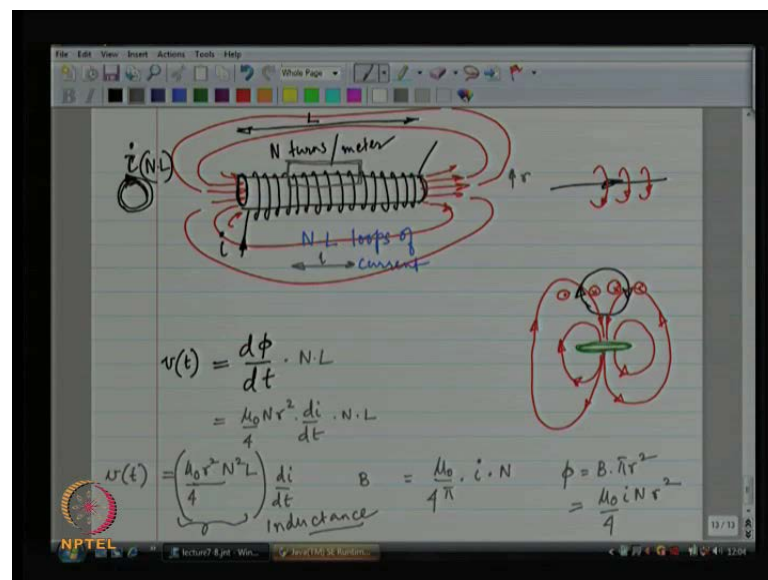 File Edit View Insert Actions Tools Help
Whole Page
B I
L
i(N·L)
N turns/meter
↑r
i
N·L loops of
current
l
v(t) = dφ/dt · N·L
= μ₀/4 Nr² · di/dt · N·L
v(t) = (μ₀r²N²L/4) di/dt
Inductance
B = μ₀/4π · i · N
φ = B·πr²
= μ₀iNr²/4
13 / 13
NPTEL
lecture7-8.jnt - Win...
Java(TM) SE Runtim...
12:04